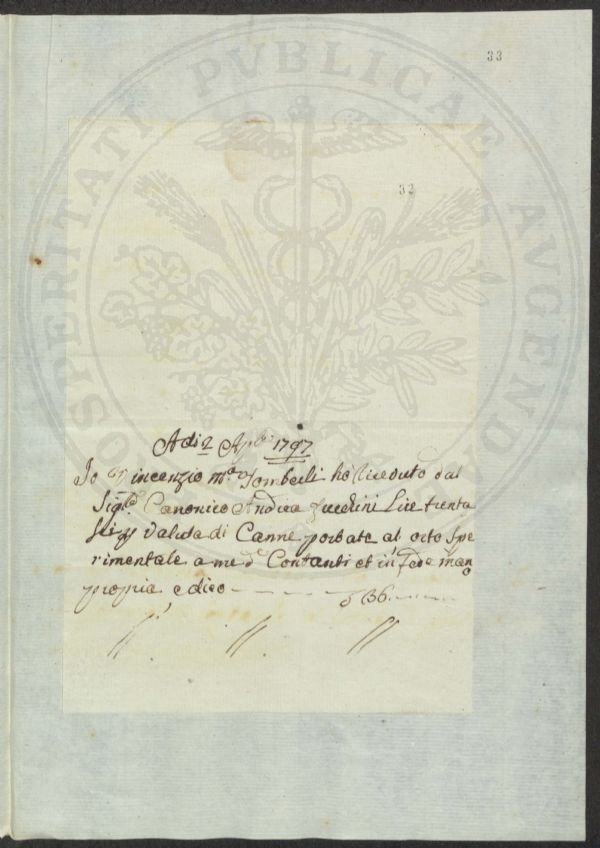 33
PROSPERITATI PVBLICAE AVGENDAE
32
Adi 2 Ap:le 1797
Io Vincenzio M:a Tombeli ho riceduto dal
Sig:re Canonico Andrea Zucchini Lire trenta
sei p valuta di Canne portate al orto Spe
rimentale a me d:o Contanti et in fede mano
propria e dico - - - - - - £ 36